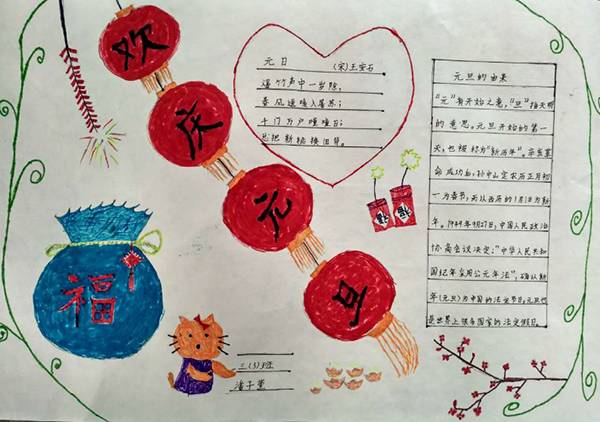 欢
庆
元
旦
元日 (宋)王安石
爆竹声中一岁除,
春风送暖入屠苏;
千门万户曈曈日;
总把新桃换旧符。
元旦的由来
"元"有开始之意,"旦"指天明
的意思。元旦开始的第一
天,也被称为"新历年"。辛亥革
命成功后,孙中山定农历正月初
一为春节,而以西历的1月1日为新
年。1949年9月27日,中国人民政治
协商会议决定:"中华人民共和
国纪年采用公元年法",确认新
年(元旦)为中国的法定节日;元旦也
是世界上很多国家的法定假日。
福
三(3)班